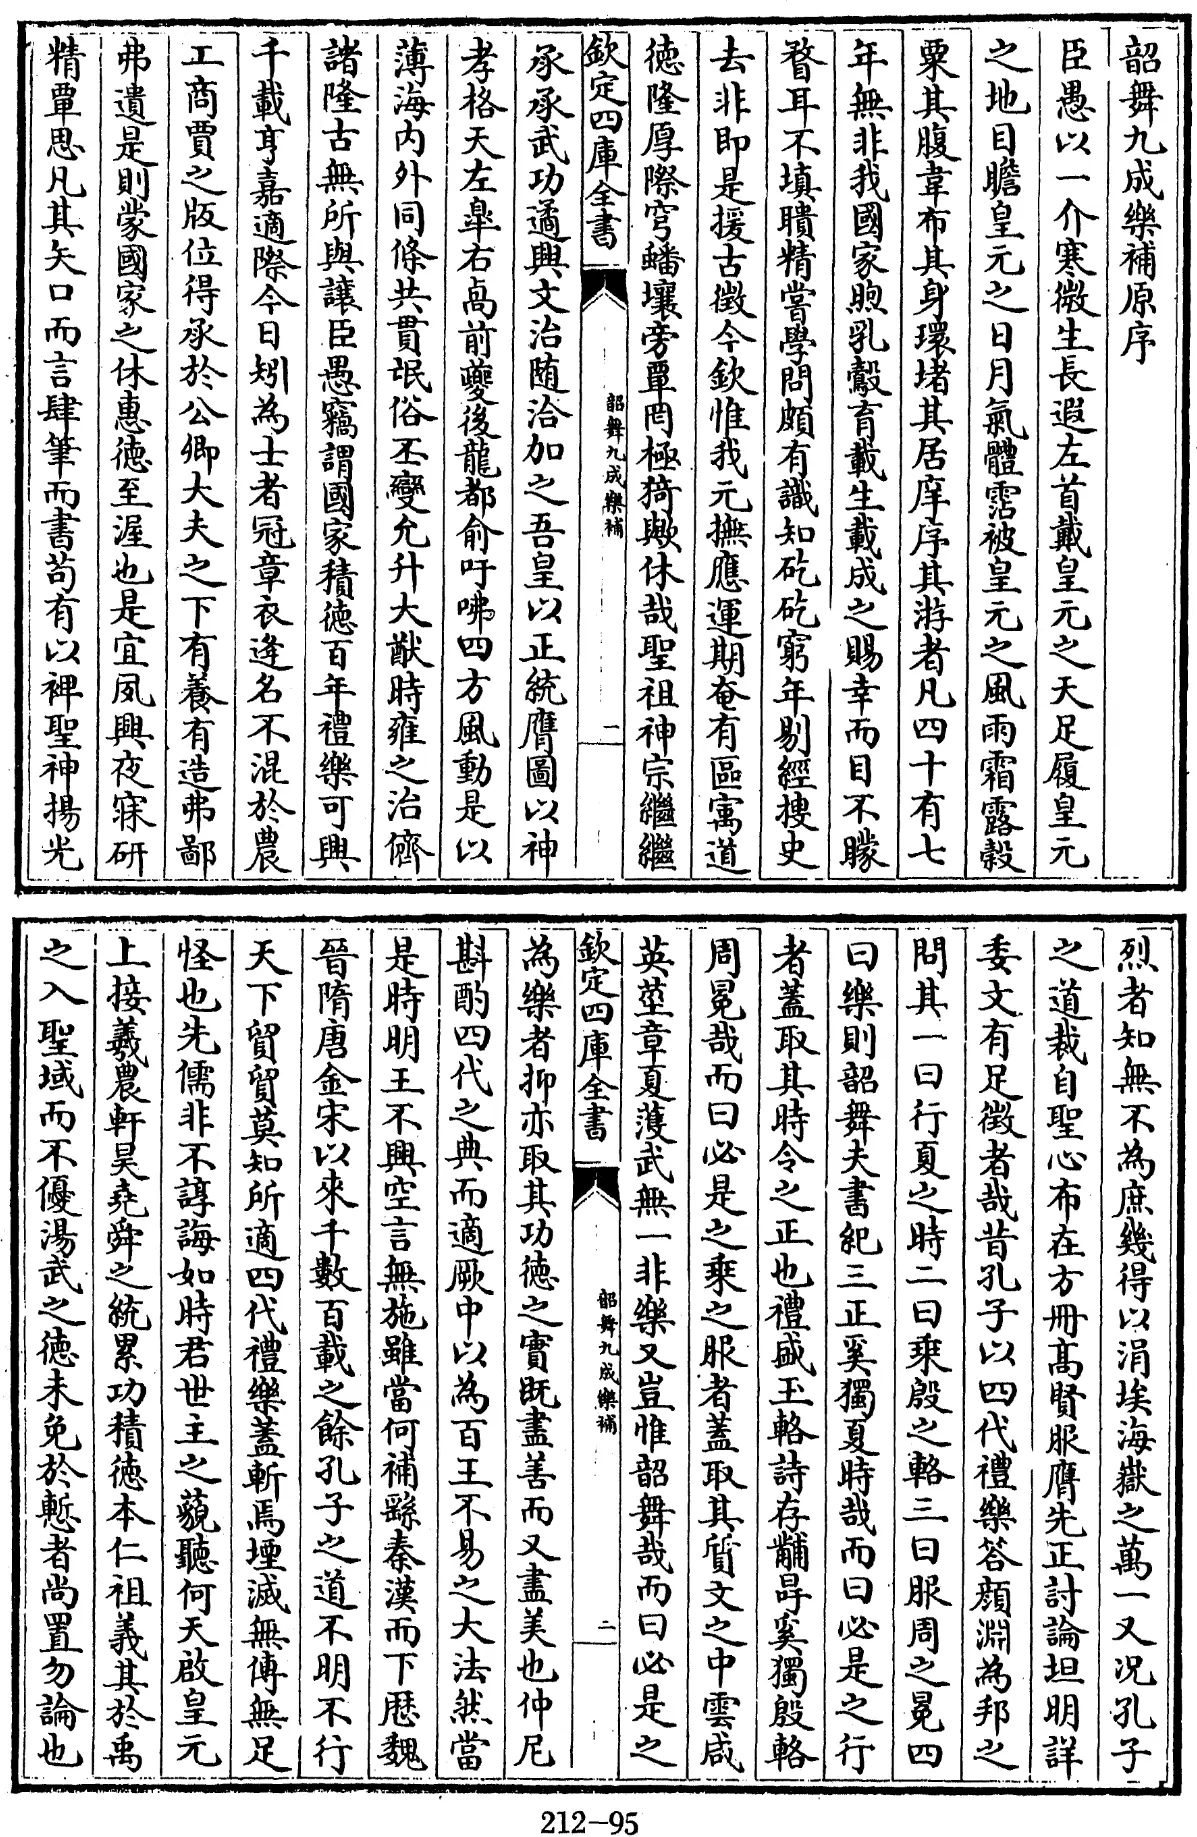 韶舞九成樂補原序
臣愚以一介寒微生長遐左首戴皇元之天足履皇元
之地目瞻皇元之日月氣體霑被皇元之風雨霜露穀
粟其腹韋布其身環堵其居庠序其游者凡四十有七
年無非我國家煦乳鷇育載生載成之賜幸而目不矇
瞀耳不填聵精嘗學問頗有識知矻矻窮年剔經摟史
去非即是援古徵今欽惟我元撫應運期奄有區㝢道
德隆厚際穹蟠壤旁覃罔極猗歟休哉聖祖神宗繼繼
欽定四庫全書
韶舞九成樂補
一
承承武功遹興文治随洽加之吾皇以正統膺圖以神
孝格天左臯右卨前夔後龍都俞吁咈四方風動是以
薄海内外同條共貫氓俗丕變允升大猷時雍之治儕
諸隆古無所與讓臣愚竊謂國家積德百年禮樂可興
千載亨嘉適際今日矧為士者冠章衣逢名不混於農
工商賈之版位得承於公卿大夫之下有養有造弗鄙
弗遺是則蒙國家之休惠德至渥也是宜夙興夜寐研
精覃思凡其矢口而言肆筆而書茍有以裨聖神揚光
烈者知無不為庶幾得以涓埃海嶽之萬一又况孔子
之道裁自聖心布在方冊髙賢服膺先正討論坦明詳
委文有足徵者哉昔孔子以四代禮樂答顔淵為邦之
問其一曰行夏之時二曰乘殷之輅三曰服周之冕四
曰樂則韶舞夫書紀三正奚獨夏時哉而曰必是之行
者蓋取其時令之正也禮盛玉輅詩存黼冔奚獨殷輅
周冕哉而曰必是之乘之服者蓋取其質文之中雲咸
英莖章夏濩武無一非樂又豈惟韶舞哉而曰必是之
欽定四庫全書
韶舞九成樂補
二
為樂者抑亦取其功德之實既盡善而又盡美也仲尼
斟酌四代之典而適厥中以為百王不易之大法然當
是時明王不興空言無施雖當何補繇秦漢而下歴魏
晉隋唐金宋以來千數百載之餘孔子之道不明不行
天下貿貿莫知所適四代禮樂蓋斬焉堙滅無傳無足
怪也先儒非不諄誨如時君世主之藐聽何天啟皇元
上接羲農軒昊堯舜之統累功積德本仁祖義其於禹
之入聖域而不優湯武之德未免於慙者尚置勿論也
212-95